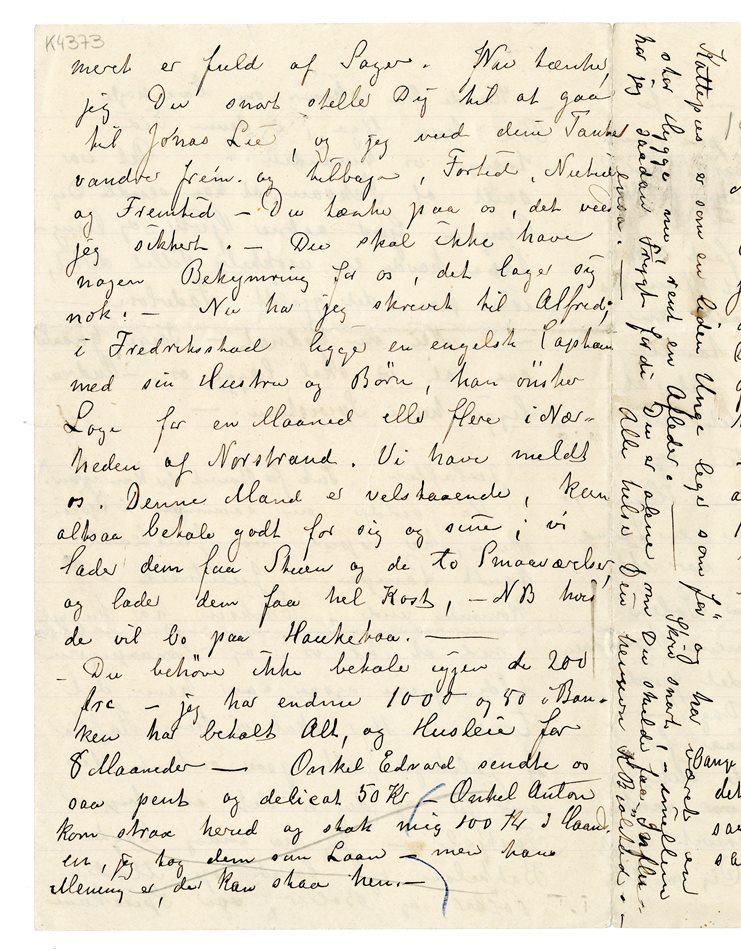 K4373
meret er fuld af Sager. Nu tænker
jeg Du snart stelle Dig til at gaa
til Jonas Lie, og jeg veed dine Tanker
vandrer frem- og tilbage, Fortid, Nutid
og Fremtid – Du tænke paa os, det veed
jeg sikkert. – Du skal ikke have
nogen Bekymring for os, det lager sig
nok. – Nu har jeg skrevet til Alfred;
i Fredriksstad ligge en engelsk Captain
med sin Hustru og Børn, han ønsker
Loge for en Maaned elle flere i Nær-
heden af Norstrand. Vi have meldt
os. Denne Mand er velstaaende, kan
altsaa betale godt for sig og sine; vi
lader dem faa Stuen og de to Smaaværelser,
og lader dem faa hel Kost, – NB hvis
de vil bo paa Hauketoa. —
– Du behøve ikke betale igjen de 200
frc – jeg har endnu 1000 og 50 i Ban-
ken har betalt Alt, og Husleie for
8 Maaneder — Onkel Edvard sendte os
saa pent og delicat 50 Kr – Onkel Anton
kom strax herud og stak mig 100 Kr i Haand
en, jeg tog dem som Laan – men hans
Mening er, der kan staa hen. –
Kattepus er som en liden Unge leger som før og har været en
stor Hygge nu, rent en Afleder. — Skriv snart! – imellem
har jeg saadan Frygt fordi Du er alene, om Du skulde faa Influ-
ensa. — Alle hilse Din hengivne K Bjølstad. –